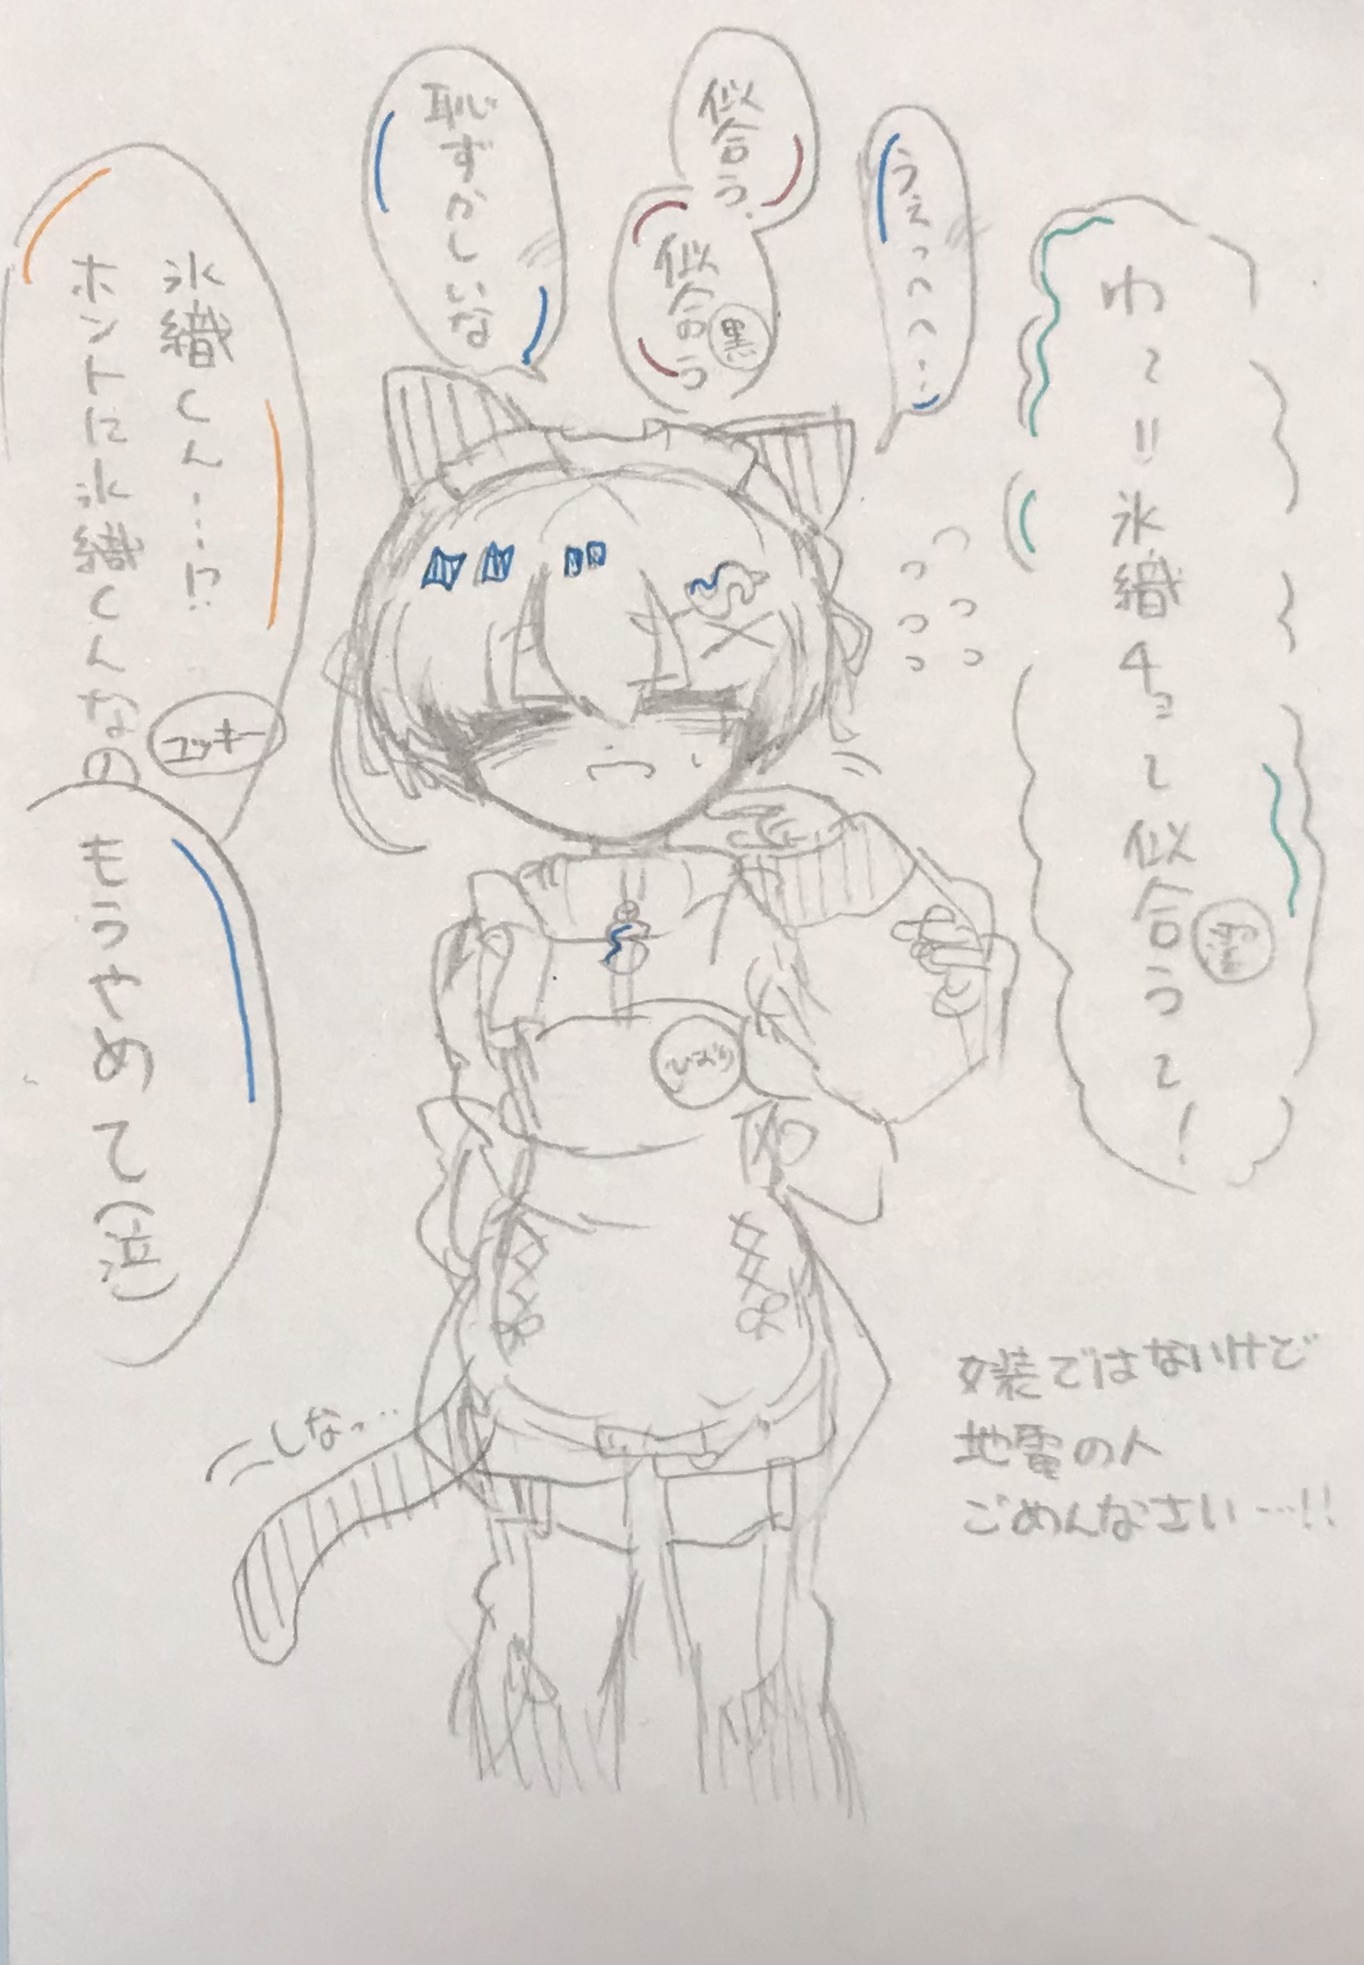 わ〜!! 氷織チョー似合うて!
雪
うぇっへへ…
似合う、
似合う
黒
恥ずかしいな
氷織くん…!?
ホントに氷織くんなの
ユッキー
もうやめて(泣)
ひおり
しな…
女装ではないけど
地雷の人
ごめんなさい…!!